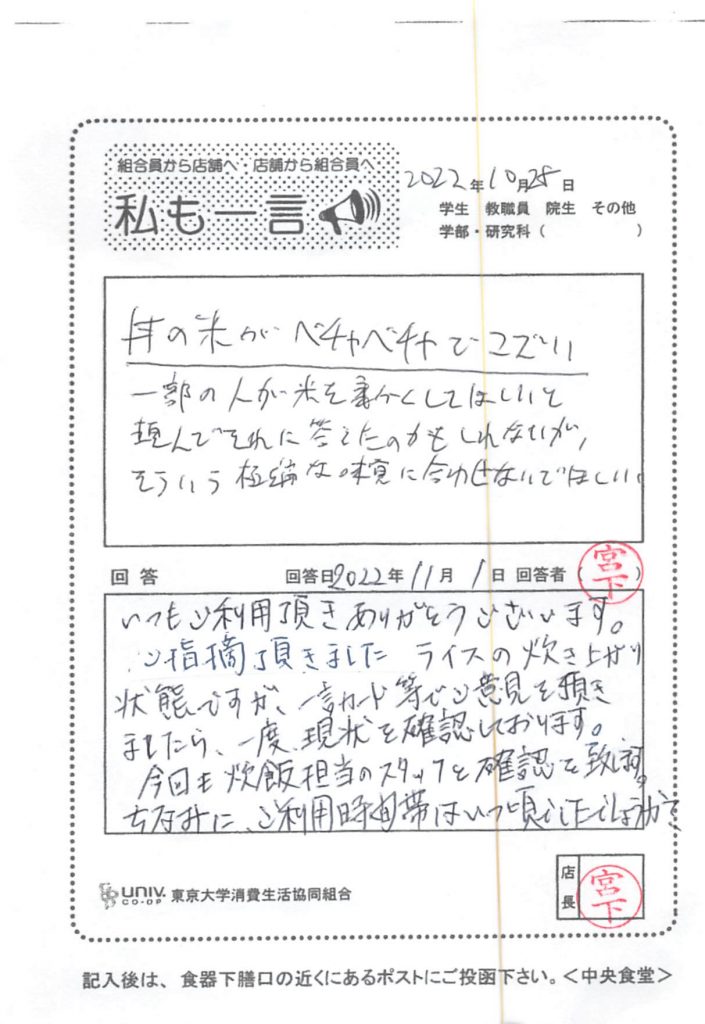 組合員から店舗へ・店舗から組合員へ
私も一言
2022年10月28日
学生 教職員 院生 その他
学部・研究科（ ）
丼の米がベチャベチャでマズい
一部の人が米を柔かくしてほしいと
頼んでそれに答えたのかもしれないが、
そういう極端な味覚に合わせないでほしい
回答 回答日2022年11月1日 回答者（宮下）
いつもご利用頂きありがとうございます。
ご指摘頂きました ライスの炊き上がり
状態ですが、一言カード等でご意見を頂き
ましたら、一度、現状を確認しております。
今回も炊飯担当のスタッフと確認を致します。
ちなみに、ご利用時間帯はいつ頃でしたでしょうか？
UNIV. CO-OP 東京大学消費生活協同組合
店長 宮下
記入後は、食器下膳口の近くにあるポストにご投函下さい。＜中央食堂＞